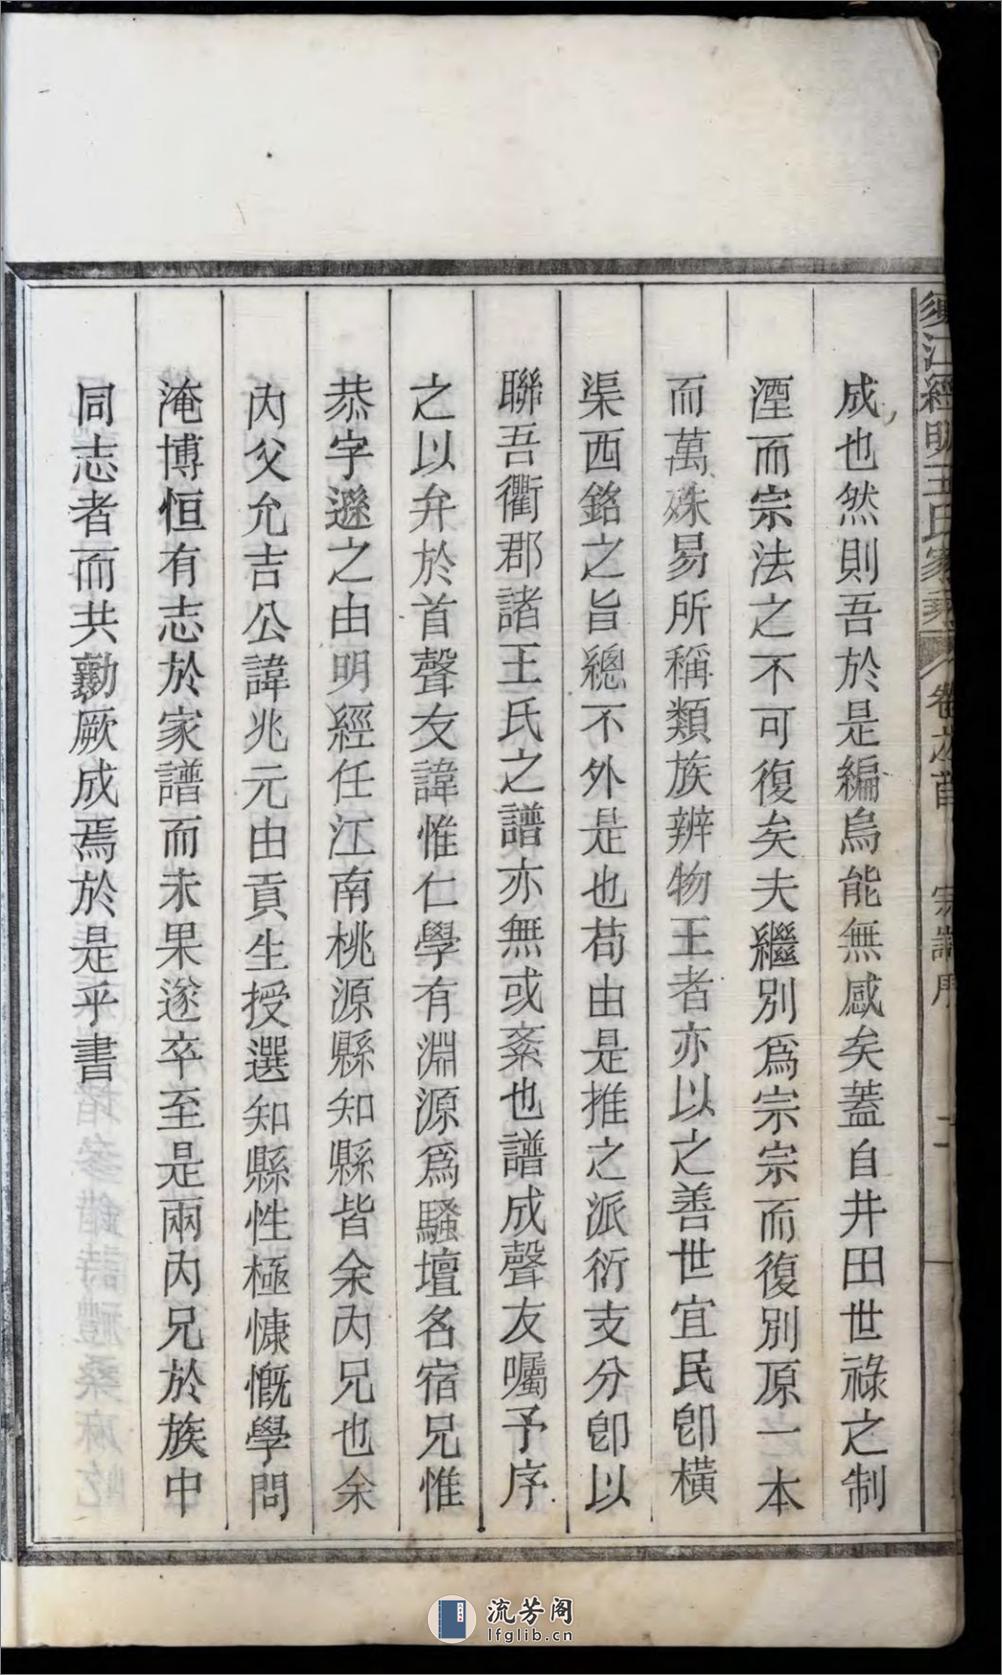 須江經明王氏家乘 卷之首 宗譜序
成也然則吾於是編烏能無感矣蓋自井田世祿之制
湮而宗法之不可復矣夫繼別爲宗宗而復別原一本
而萬殊易所稱類族辨物王者亦以之善世宜民卽橫
渠西銘之旨總不外是也苟由是推之派衍支分卽以
聯吾衢郡諸王氏之譜亦無或紊也譜成聲友囑予序
之以弁於首聲友諱惟仁學有淵源爲騷壇名宿兄惟
恭字遜之由明經任江南桃源縣知縣皆余內兄也余
內父允吉公諱兆元由貢生授選知縣性極慷慨學問
淹博恒有志於家譜而未果遂卒至是兩內兄於族中
同志者而共勷厥成焉於是乎書
流芳阁
lfglib.cn